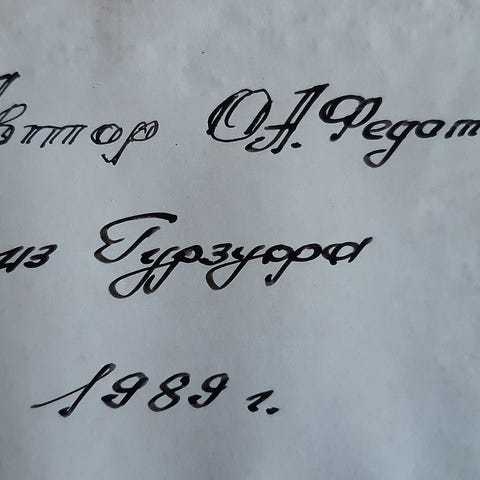 Автор О.А. Федот
из Гурзуфа
1989 г.